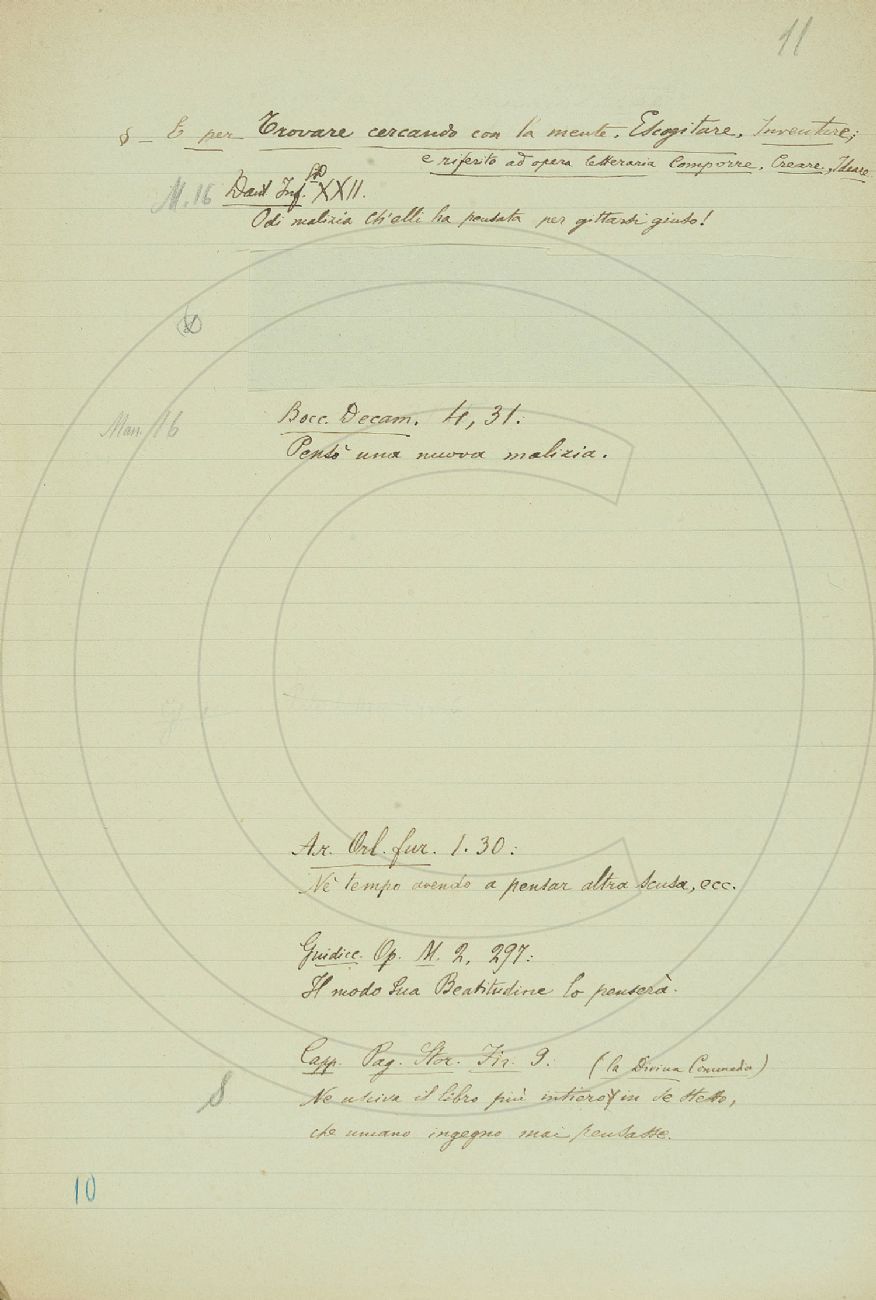 11
§ — E per Trovare cercando con la mente, Escogitare, Inventare;
e riferito ad opera letteraria Comporre, Creare, Ideare.
M. 16 Dant. Inf. XXII.
Odi malizia ch'elli ha pensata per gittarsi giuso!
Man. 16 Bocc. Decam. 4, 31:
Pensò una nuova malizia.
Ar. Orl. fur. 1. 30:
Nè tempo avendo a pensar altra scusa, ecc.
Guidicc. Op. M. 2, 297:
Il modo Sua Beatitudine lo penserà.
Capp. Pag. Stor. Fir. 9: (la Divina Commedia)
Ne usciva il libro più intiero in se stesso,
che umano ingegno mai pensasse.
10